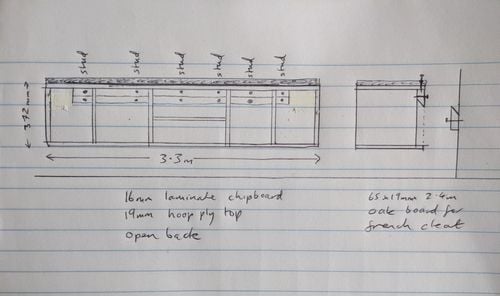 stud stud stud stud stud stud
372mm
3.3m
16mm laminate chipboard
19mm hoop ply top
open back
65x19mm 2.4m
oak board for
french cleat